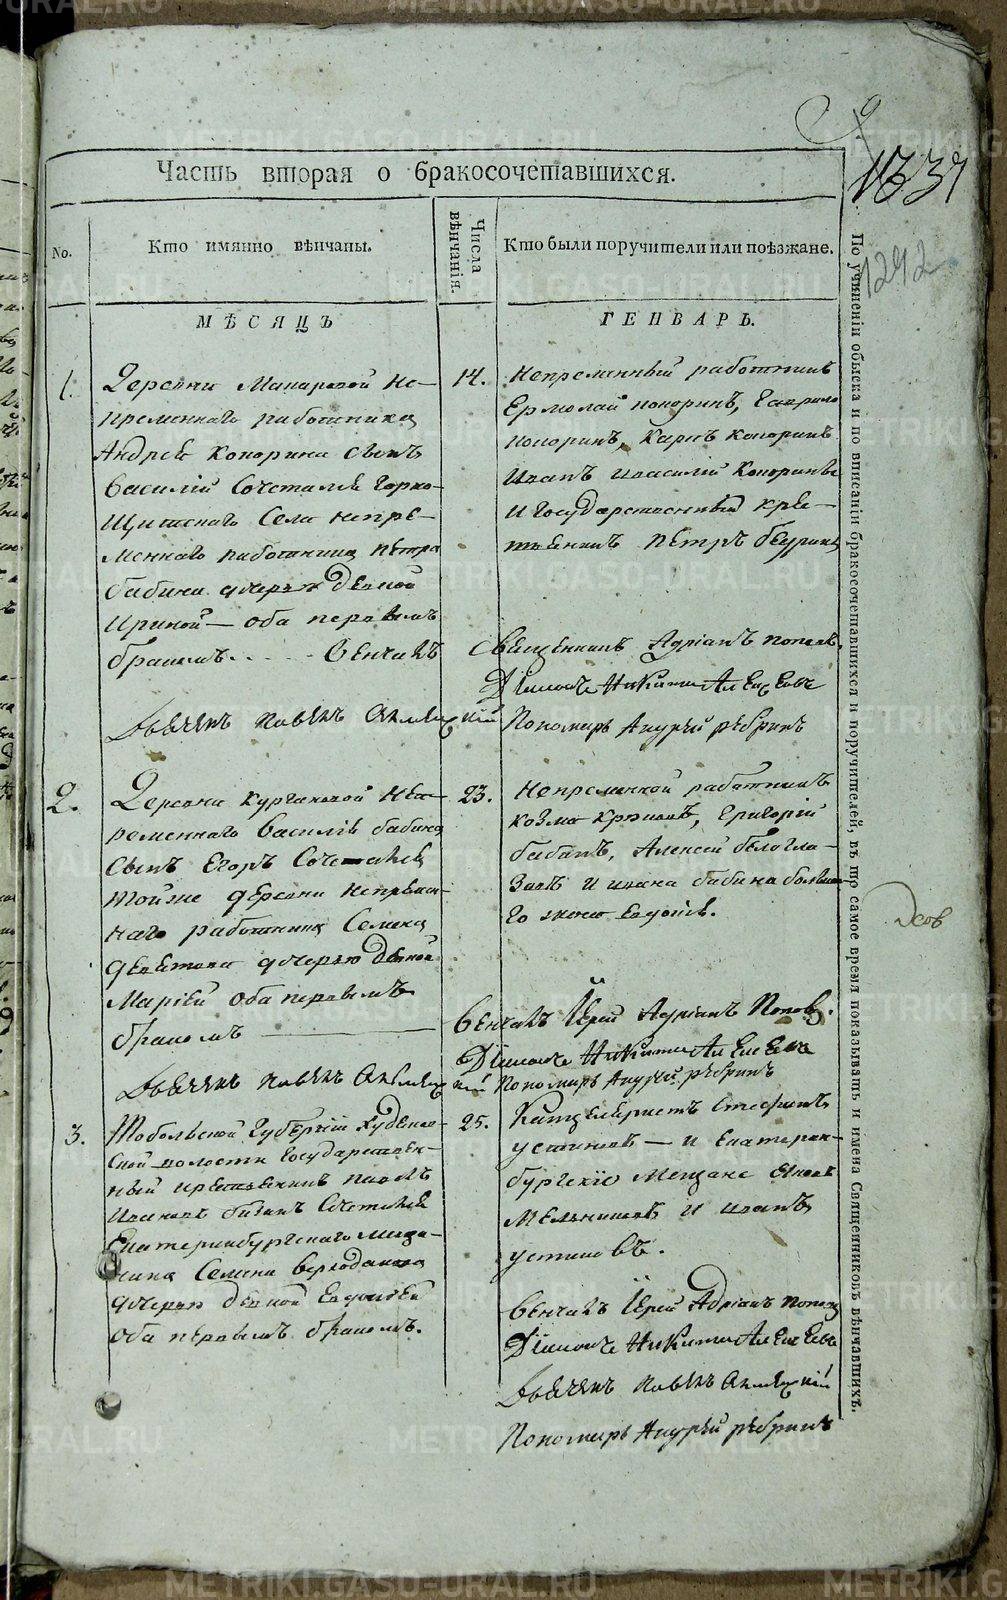 1337
1292
Часть вторая о бракосочетавшихся.
No.
Кто имянно вѣнчаны.
Числа вѣнчанія.
Кто были поручители или поѣзжане.
МѢСЯЦЪ
ГЕНВАРЬ.
1.
Деревни Макаровой не-
пременнаго работника
Андрея Конорина сынъ
Василій Сочетался Горно-
Щитскаго Села непре-
меннаго работника Петра
Бабина дочерью девкой
Ириной — оба первымъ
бракомъ. . . . . Венчалъ
14.
Непременный работникъ
Ермолай Коноринъ, Гаврило
Коноринъ, Карпъ Коноринъ
Иванъ и Василій Конорины
и Государственный кре-
стьянинъ Петръ
Священникъ Адріанъ Поповъ
Діаконъ Никита Алексеевъ
Дьячекъ Павелъ
Пономарь Андрей Рѣбринъ
2.
Деревни Кургановой Неп-
ременнаго Василія Бабина
Сынъ Егоръ Сочетался
тойже деревни непремен-
наго работника Семена
Девятова дочерью девкой
Маріей оба первымъ
бракомъ
23.
Непременной работникъ
Козма Крюковъ, Григорій
Бабинъ, Алексей Белогла-
зовъ и Ивана Бабина больша-
го жена Евдокія.
Венчалъ Іерей Адріанъ Поповъ.
Діаконъ Никита Алексеевъ
Дьячекъ Павелъ
Пономарь Андрей Рѣбринъ
3.
Тобольской Губерніи
ской волости Государствен-
ный крестьянинъ
Сочетался
Екатеринбургскаго меща-
нина Семена
дочерью девкой Евдокіей
оба первымъ бракомъ.
25.
Канцеляристъ Стефанъ
Устиновъ — и Екатерин-
бургскіе Мещане
Мельниковъ и Иванъ
Устиновъ.
Венчалъ Іерей Адріанъ Поповъ
Діаконъ Никита Алексеевъ
Дьячекъ Павелъ
Пономарь Андрей Рѣбринъ
По учиненіи обыска и по вписаніи бракосочетавшихся и поручителей, въ то самое время показывать и имена Священниковъ вѣнчавшихъ.
METRIKI.GASO-URAL.RU